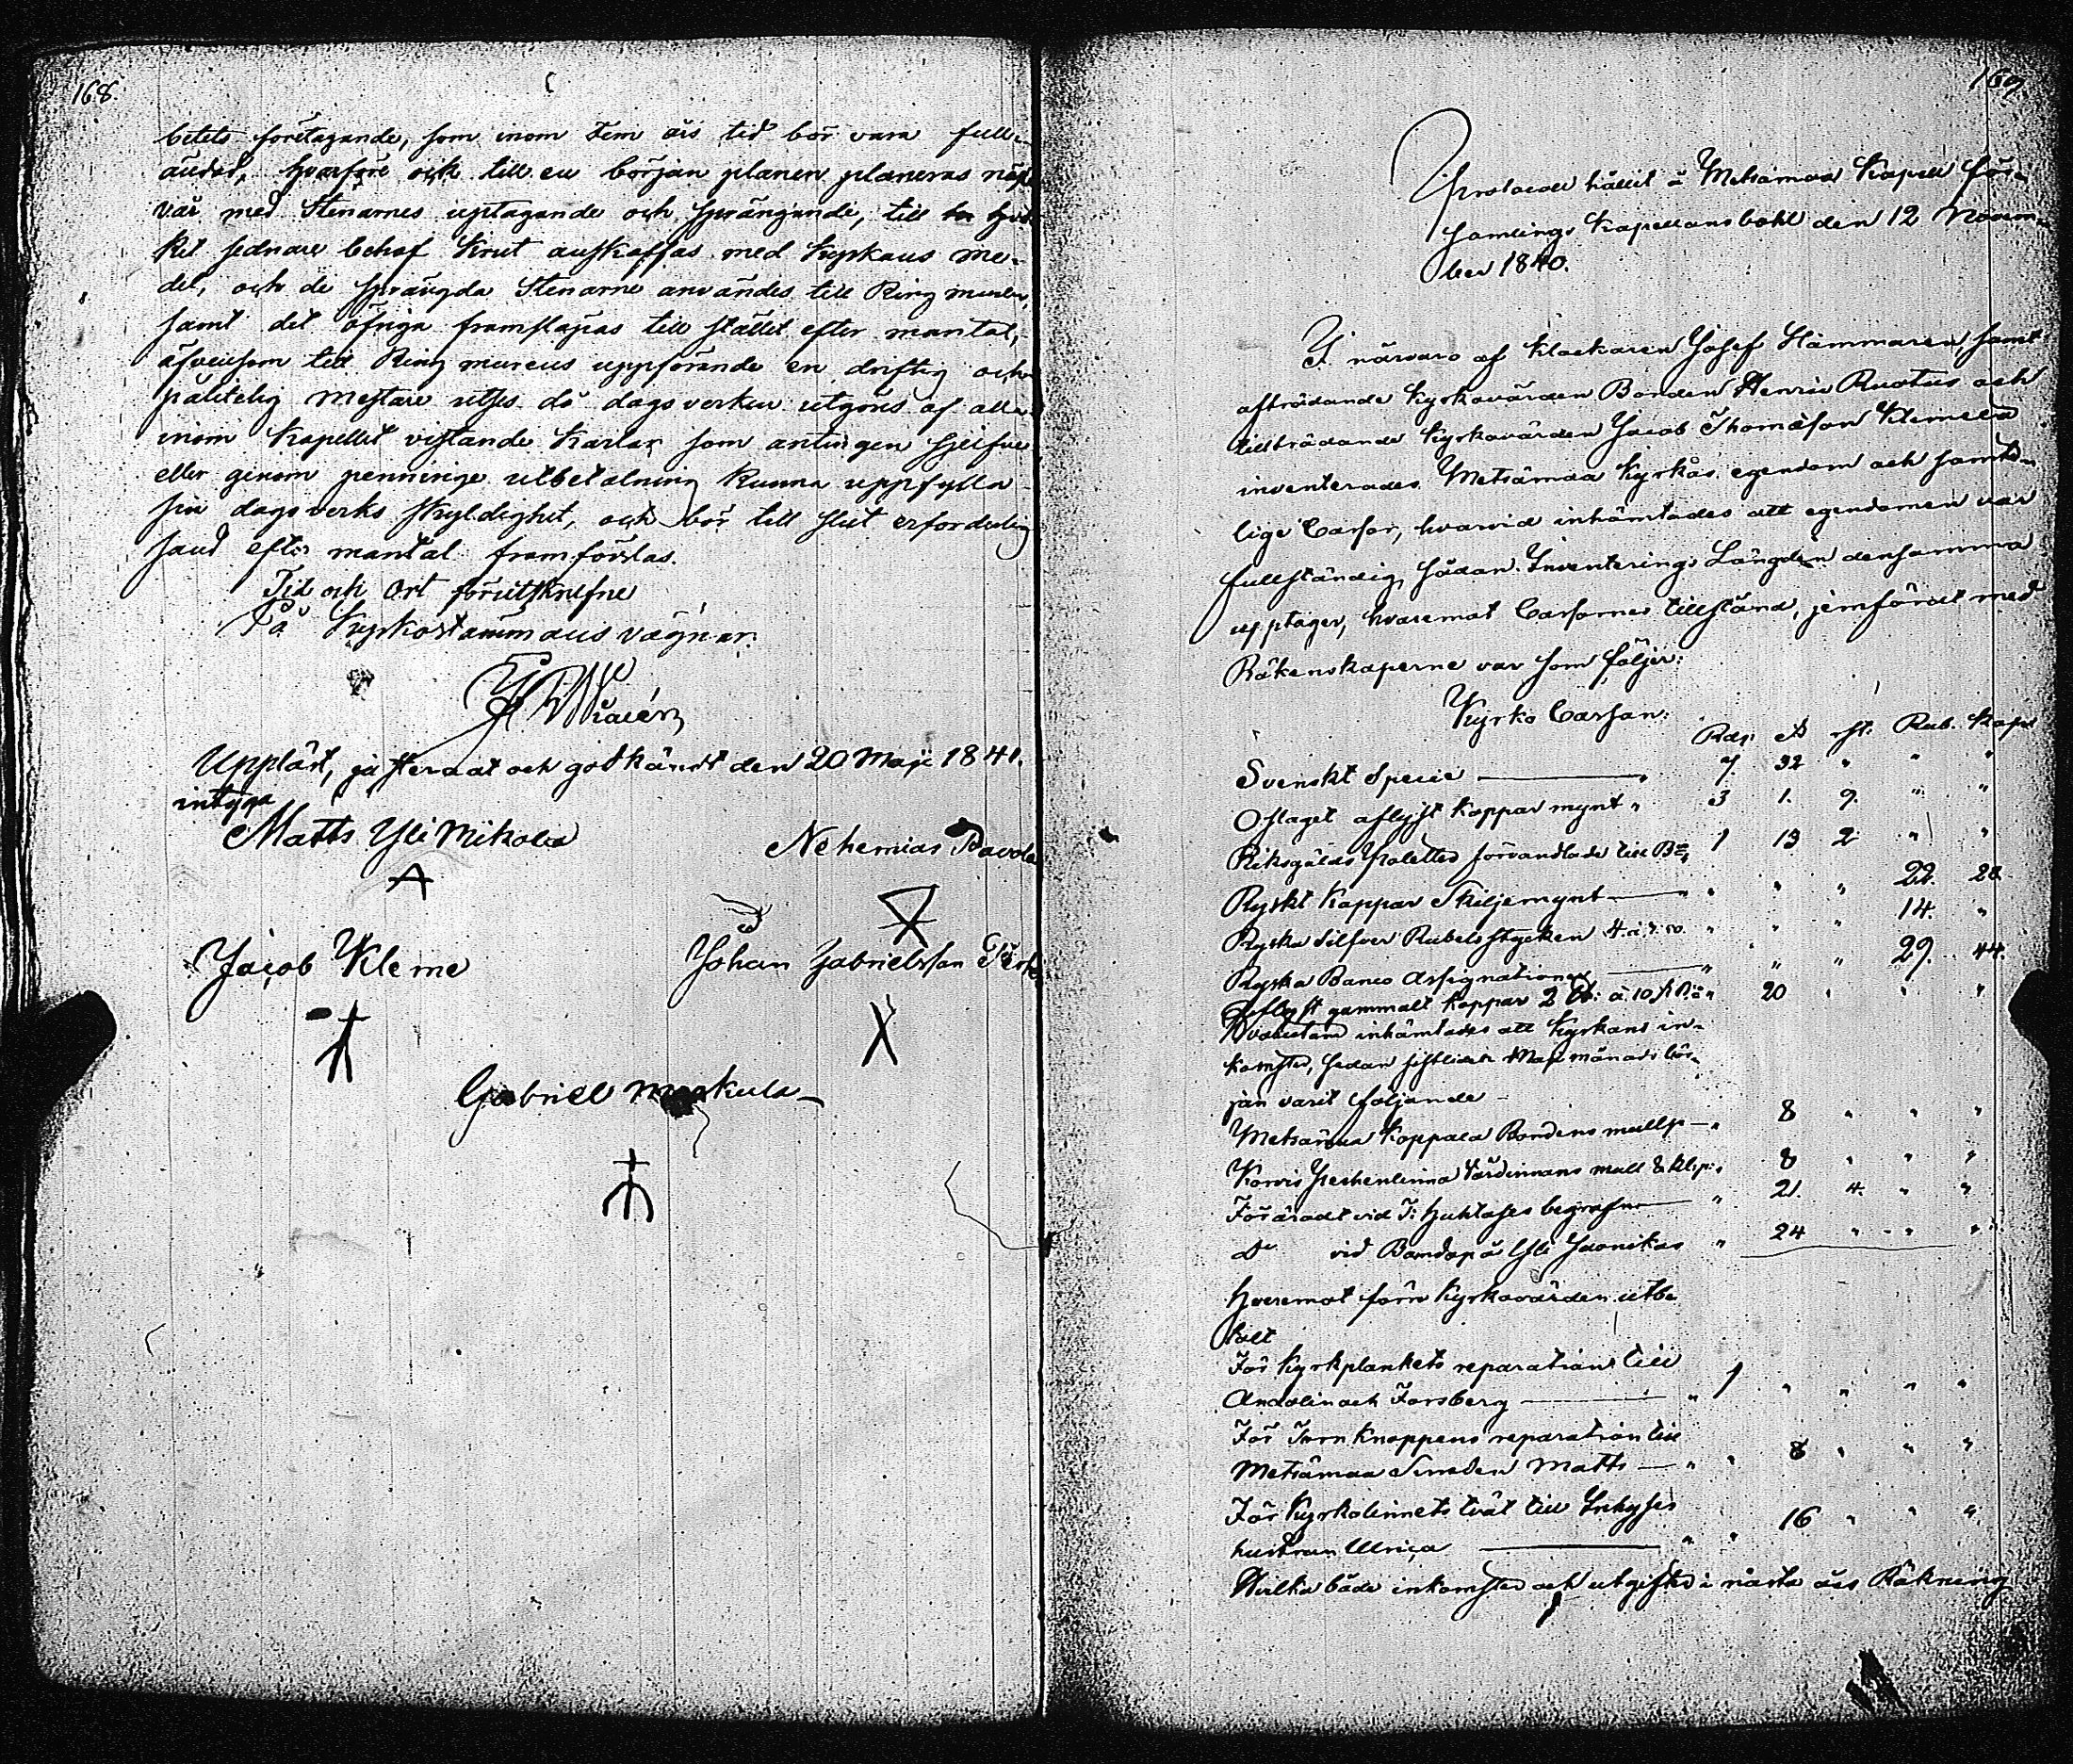 168.
betets företagande, som inom Fem års tid bör vara full-
ändad, hvarföre och till en början planen planeras nästa
vår med Stenarnes uptagande och sprängande, till hvil-
ket sednare behof Krut anskaffas med Kyrkans me-
del, och de sprängda Stenarne användes till Ring muren,
samt det öfriga framskaffas till stället efter mantal,
äfvensom till Ring murens uppförande en driftig och
pålitelig mästare utses då dagsverken utgöras af alla
inom Kapellet vistande Karlar som antingen sjelfve
eller genom penninge utbetalning kunna uppfylla
sin dagsverks skyldighet, och bör till slut erforderlig
sand efter mantal framförslas.
Tid och Ort förutskrefne
På Kyrkostämmans vägnar:
Uppläst, justeradt och godkändt den 20 Maji 1841.
intyga
Matts Yli Mikola
Nehemias Pavola
Jacob Kleme
Johan Gabrielsson
Gabriel Markula
169
Protocoll hållit å Metsämaa Kapell för-
samlings Kapellansbohl den 12 Novem-
ber 1840.
I närvaro af Klockaren Josef Hammaren, samt
afträdande Kyrkovärden Bonden Henric Ruotus och
tillträdande Kyrkovärden Jacob Thomasson Klemela
inventerades Metsämaa Kyrkas egendom och samte-
lige Cassor, hvarvid inhämtades att egendomen var
fullständig, sådan Inventerings Längden densamma
upptager, hvaremot Cassornes tillstånd, jemfördt med
Räkenskaperne var som följer:
Kyrko Cassan:
Rdr. st. Rub. Kop.
Svenskt Specie — 7. 32 " " "
Oslaget aflyst Koppar mynt " 3 1. 9. " "
Riksgälds Poletter förvandlade till Bco 1 13 2 " "
Ryskt Koppar Skiljemynt — " " " 22. 28.
Ryska Silfver Rubelsstycken " " " 14. "
Ryska Banco Assignationer — " " " 29. 44.
Aflyst gammalt Koppar 2 à 10 " 20 " " "
Hvarutom inhämtades att Kyrkans in-
komster, sedan sistledne Maji månads bör-
jan varit följande —
Metsämaa Koppala Bondens mullp — " 8 " " "
8 " " "
Föräradt vid begrafn — " 21. 4. " "
Do vid Bondop å Yli " 24 " " "
Hvaremot förre Kyrkovärden utbe
talt
För Kyrkplankets reparation till
Andolin och Forsberg — " 1 " " " "
För Torn Knappens reparation till
Metsämaa Smeden Matts — " " 8 " " "
För Kyrkolinnets tvät till Inhyses
hustrun Ulrica — " " 16 " " "
Hvilka både inkomster och utgifter i nästa års Räkning